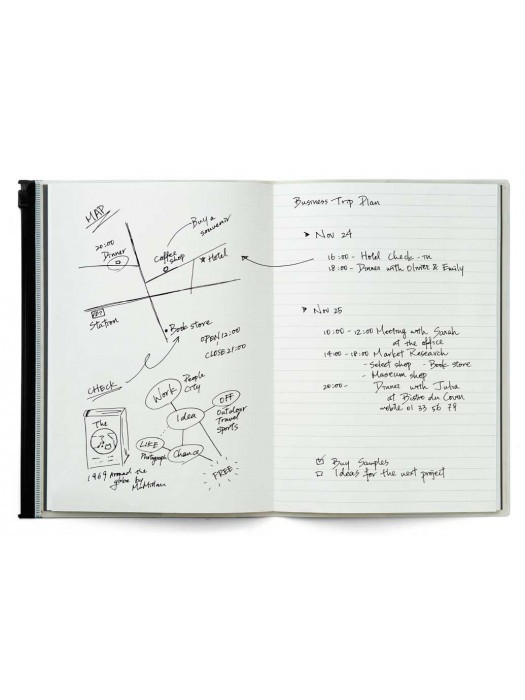 MAP
Buy a
souvenir
20:00
Dinner
Coffee
shop
Hotel
Station
Book store
OPEN 12:00
CLOSE 21:00
CHECK
Work
People
City
Idea
OFF
Outdoor
Travel
Sports
LIKE
Photograph
Chance
FREE
The
1969 Around the
globe by
Business Trip Plan
Nov 24
16:00 - Hotel Check-in
18:00 - Dinner with Olivier & Emily
Nov 25
10:00 - 12:00 Meeting with Sarah
at the office
14:00 - 18:00 Market Research
- Select shop - Book store
- Museum shop
20:00 - Dinner with Julia
at Bistro du
mobile 01 33 56 79
Buy Samples
Ideas for the next project